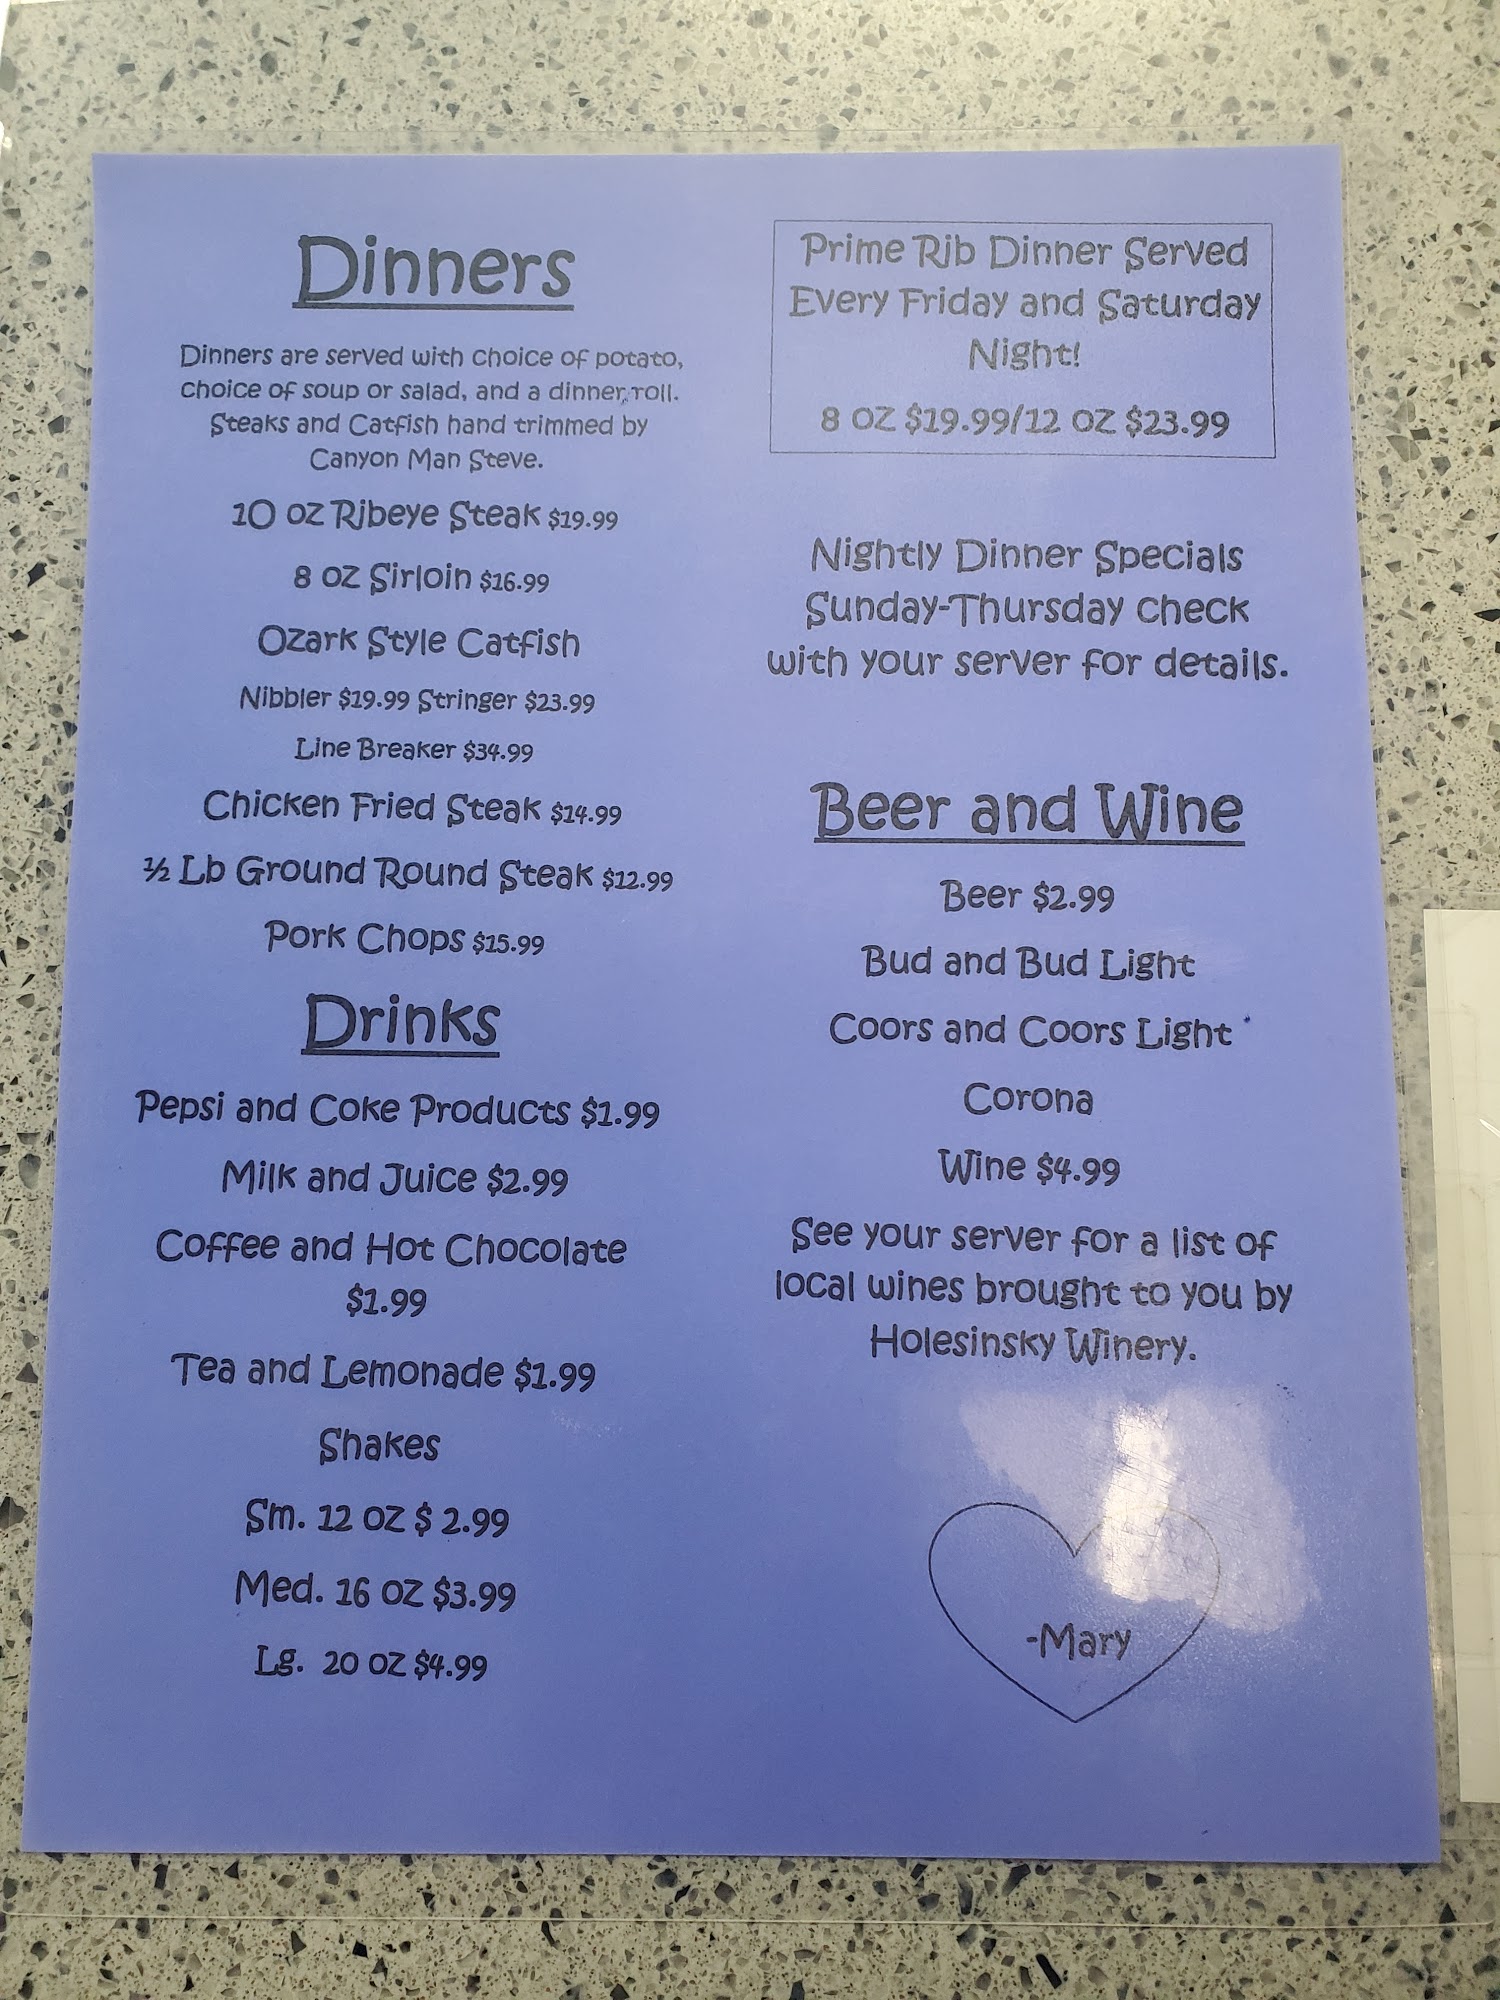 Dinners
Dinners are served with choice of potato,
choice of soup or salad, and a dinner roll.
Steaks and Catfish hand trimmed by
Canyon Man Steve.
10 oz Ribeye Steak $19.99
8 oz Sirloin $16.99
Ozark Style Catfish
Nibbler $19.99 Stringer $23.99
Line Breaker $34.99
Chicken Fried Steak $14.99
½ Lb Ground Round Steak $12.99
Pork Chops $15.99
Drinks
Pepsi and Coke Products $1.99
Milk and Juice $2.99
Coffee and Hot Chocolate
$1.99
Tea and Lemonade $1.99
Shakes
Sm. 12 oz $ 2.99
Med. 16 oz $3.99
Lg. 20 oz $4.99
Prime Rib Dinner Served
Every Friday and Saturday
Night!
8 oz $19.99/12 oz $23.99
Nightly Dinner Specials
Sunday-Thursday check
with your server for details.
Beer and Wine
Beer $2.99
Bud and Bud Light
Coors and Coors Light
Corona
Wine $4.99
See your server for a list of
local wines brought to you by
Holesinsky Winery.
-Mary